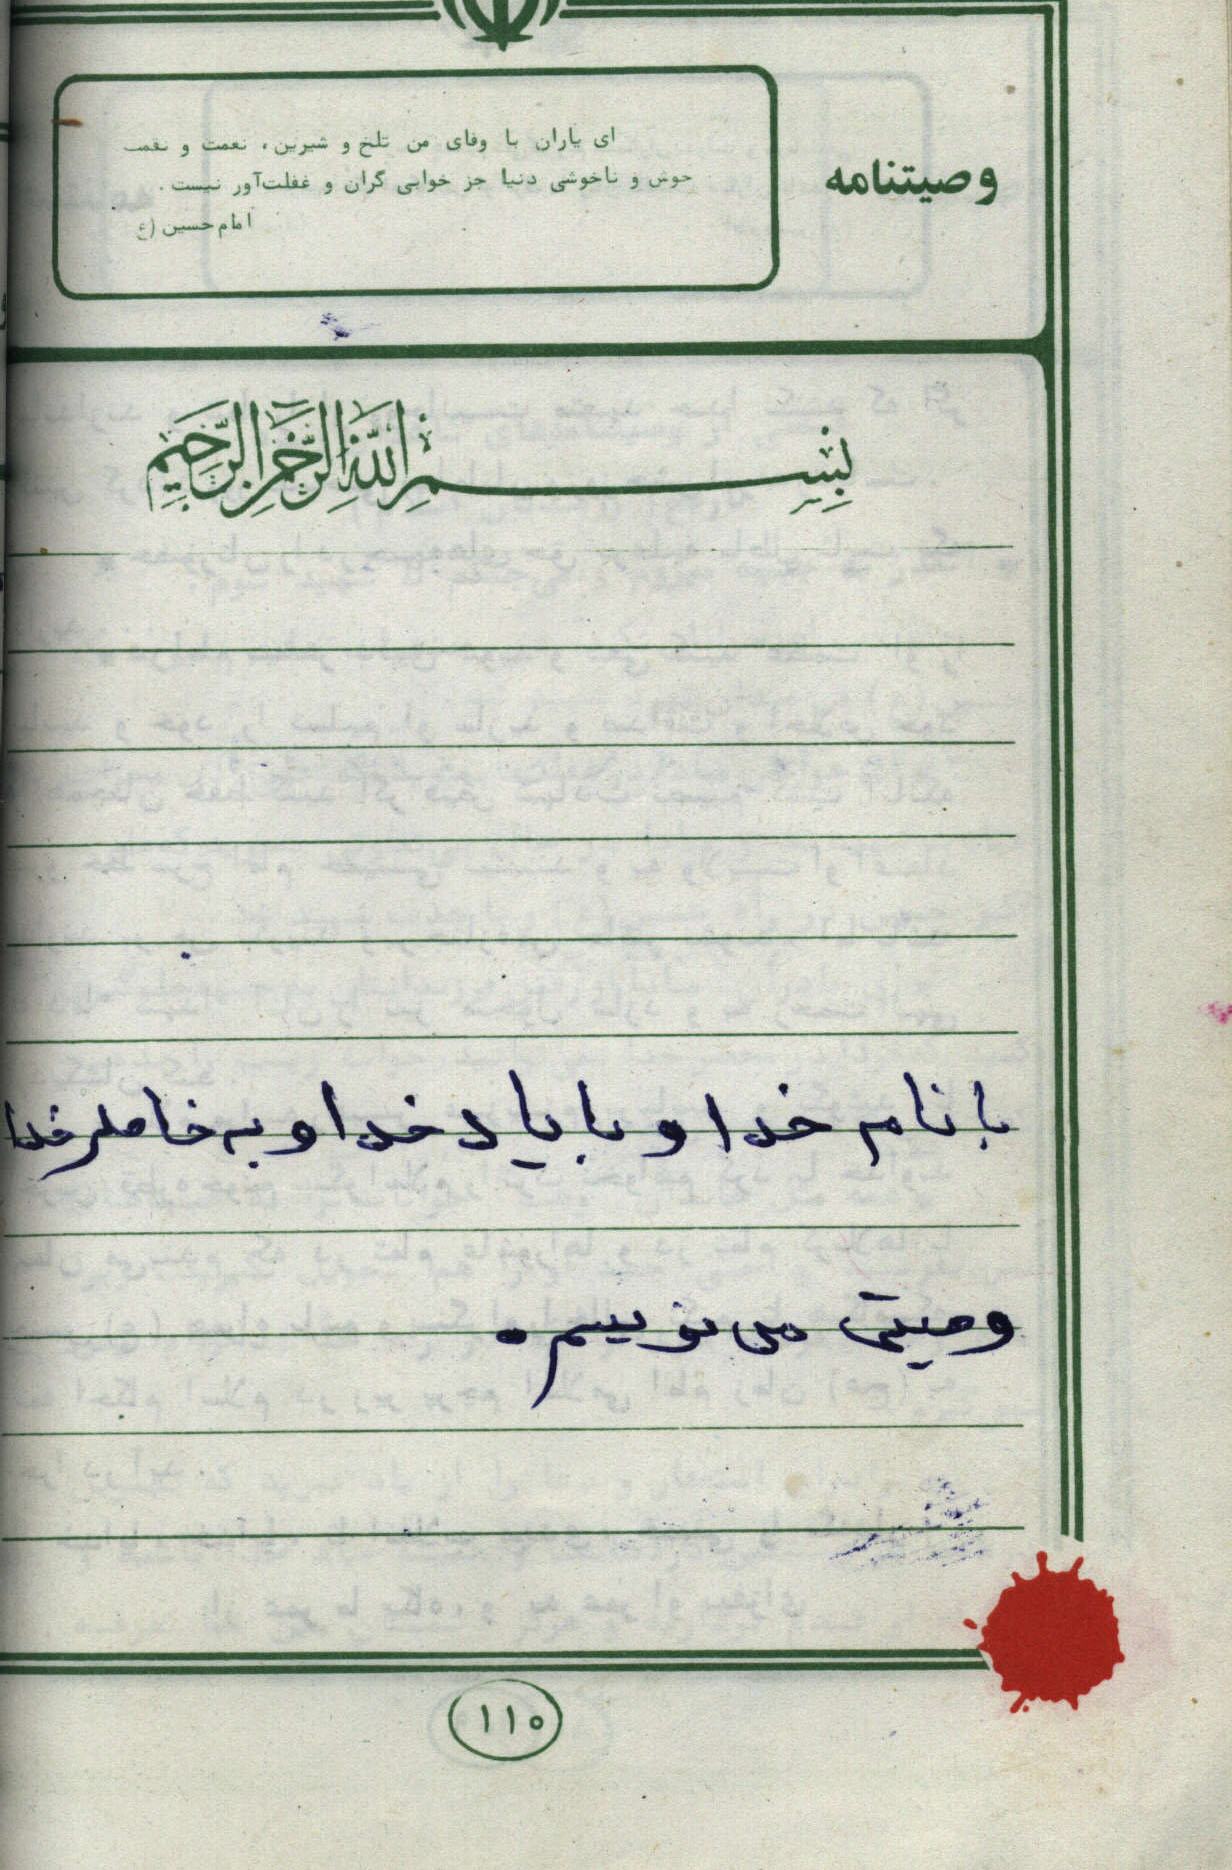 وصیتنامه
ای یاران با وفای من تلخ و شیرین، نعمت و نقمت
خوش و ناخوشی دنیا جز خوابی گران و غفلت‌آور نیست.
امام حسین (ع
بسم الله الرحمن الرحیم
با نام خدا و با یاد خدا و به خاطر خدا
وصیتی می نویسم.
۱۱۰